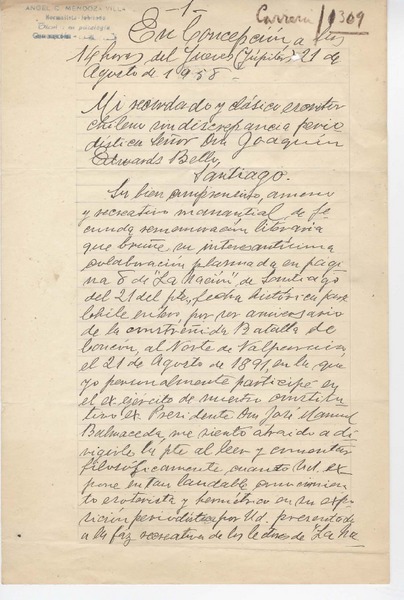 -1-
Carrera / 1309
ANGEL C. MENDOZA VILLA
En Concepción a las
14 horas del Jueves (Júpiter) 21 de
Agosto de 1958-
Mi recordado y clásico escritor
chileno sin discrepancia perio
dística Señor Don Joaquín
Edwards Bello,
Santiago.
Su bien comprensivo, ameno
y recreativo manantial de fe
cunda rememoración literaria
que bruñe su interesantísima
colaboración plasmada en pági
na 8 de "La Nación" de Santiago
del 21 del pte, fecha histórica para
Chile entero, por ser aniversario
de la Batalla de
Concón, al Norte de Valparaíso
el 21 de Agosto de 1891, en la que
yo personalmente participé en
el ex ejército de nuestro constitu
tivo ex Presidente Don José Manuel
Balmaceda, me siento atraído a di
rigirle la pte al leer y comentar
filosóficamente, cuanto Ud. ex
pone en tan laudable conocimien
to esoterista y hermético en su expo
sición periodística por Ud. presentada
a la faz recreativa de los lectores de "La Na